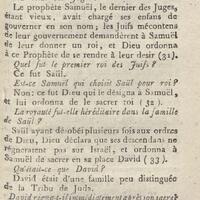 Le prophète Samuël, le dernier des Juges,
étant vieux, avait chargé ses enfans de
gouverner en son nom; les Juifs mécontens
de leur gouvernement demandèrent à Samuël
de leur donner un roi, et Dieu ordonna
à ce Prophète de se rendre à leur desir (31).
Quel fut le premier roi des Juifs?
Ce fut Saül.
Est-ce Samuel qui choisit Saül pour roi?
Non: ce fut Dieu qui le désigna à Samuël,
et lui ordonna de le sacrer roi (32).
La royauté fut-elle héréditaire dans la famille
de Saül?
Saül ayant désobéi plusieurs fois aux ordres
de Dieu, Dieu déclara que ses descendans ne
régneraient pas sur Israël, et ordonna à
Samuël de sacrer en sa place David (33).
Qu'était-ce que David?
David était d'une famille peu distinguée
de la Tribu de Juda.
David régna-t-il immédiatement après son sacre?